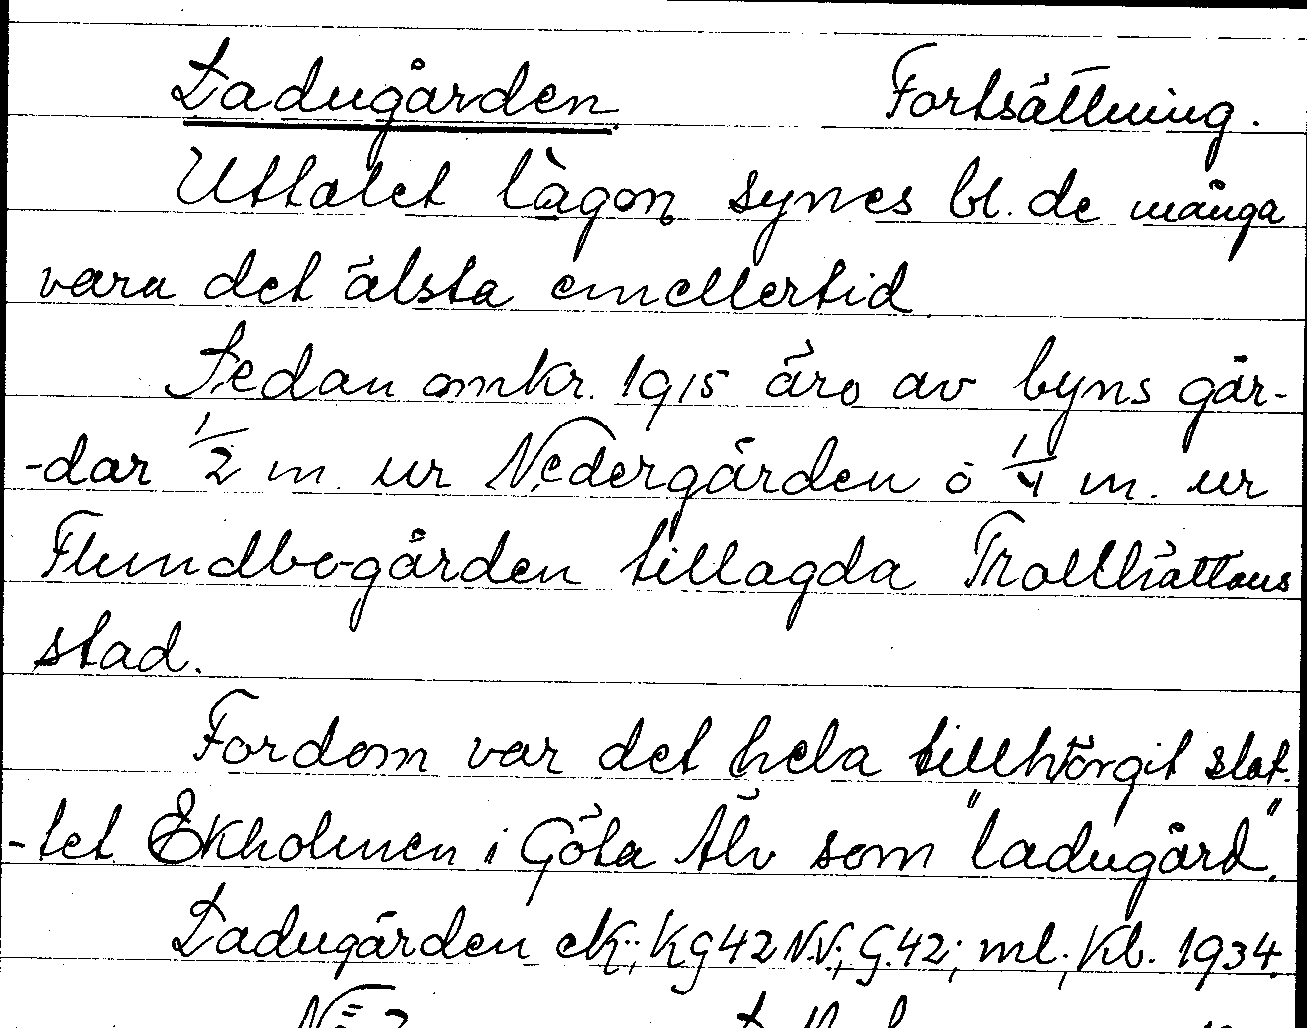 Ladugården Fortsättning.
Uttalet làgon synes bl. de många
vara det älsta emellertid
Sedan omkr. 1915 äro av byns går-
-dar 1/2 m. ur Nedergården o 1/4 m. ur
Flundbo-gården tillagda Trollhättans
stad.
Fordom var det hela tillhörgit slot-
-tet Ekholmen i Göta Älv som "ladugård".
Ladugården ek; KG42 N.V.; G.42; ml.; Kb. 1934.